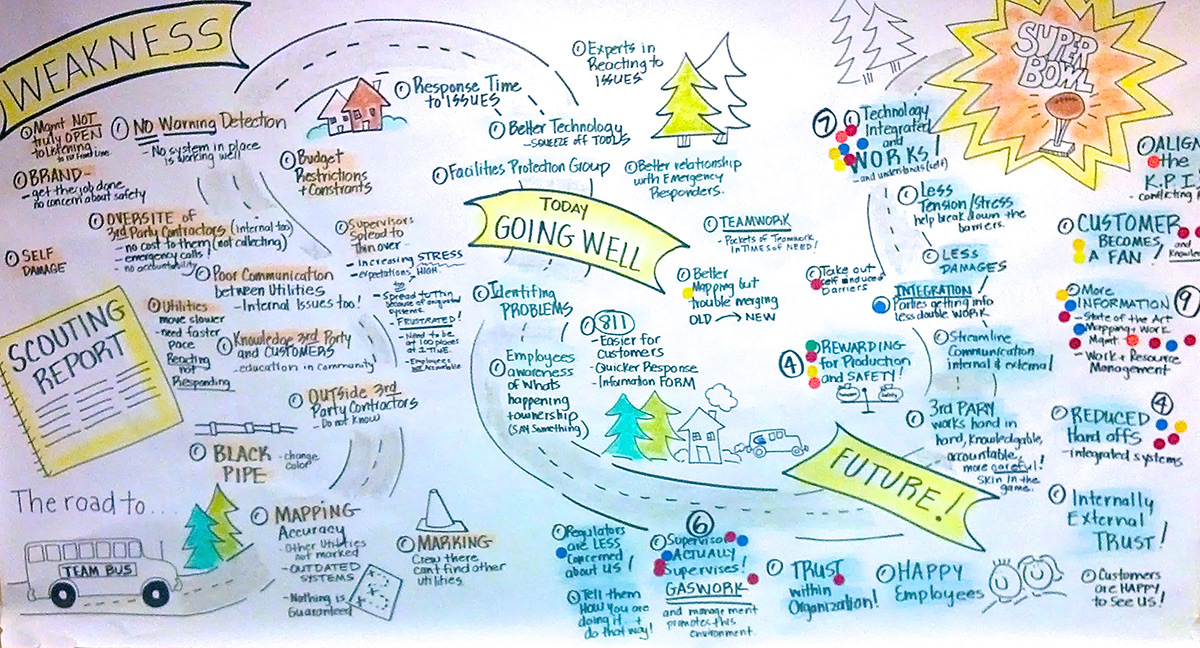 WEAKNESS
Mgmt NOT
truly OPEN
to listening
to no front line
NO Warning Detection
- No system in place
is working well
BRAND -
- get the job done
no concern about safety
Budget
Restrictions
+ Constrants
OVERSITE of
3rd Party Contractors (internal too)
- no cost to them (not collecting)
- emergency calls!
- no accountability
SELF
DAMAGE
Supervisors
Spread to
Thin over -
- increasing STRESS
- expectations HIGH
- Spread to thin
because of antiquated
systems.
- FRUSTRATED!
- Need to be
at 100 places
at 1 TIME.
- Employees
not Accountable
Poor Communication
between Utilities
- Internal Issues too!
Utilities
move slower
- need faster
pace
Reacting
not
Responding
Knowledge 3rd Party
and CUSTOMERS
- education in community
SCOUTING
REPORT
OUTSIDE 3rd
Party Contractors
- Do not know
BLACK
PIPE
- change
color
The road to...
TEAM BUS
MAPPING
Accuracy
- Other Utilities
not marked
- OUTDATED
SYSTEMS
- Nothing is
Guaranteed
MARKING
Crew there
can't find other
utilities.
Response Time
to ISSUES
Experts in
Reacting to
ISSUES
Better Technology
- SQUEEZE off TOOLS
Facilities Protection Group
Better relationship
with Emergency
Responders.
TODAY
GOING WELL
TEAMWORK
- Pockets of Teamwork
in TIMES of NEED!
Better
Mapping but
trouble merging
OLD → NEW
Identifing
PROBLEMS
811
- Easier for
Customers
- Quicker Response
- Information FORM
Employees
awareness
of whats
happening
+ ownership
(SAY Something)
FUTURE!
SUPER
BOWL
7
Technology
Integrated
and
WORKS!
- and understands (self)
ALIGN
the
K.P.I.
conflicting
Less
Tension/Stress
help break down the
barriers.
CUSTOMER
BECOMES
A FAN!
and
LESS
DAMAGES
Take out
self induced
barriers
INTEGRATION
Parties getting into
less double WORK
More
INFORMATION
- State of the Art
Mapping + Work
Mgmt
- Work + Resource
Management
9
Streamline
Communication
internal & external
4
REWARDING
for Production
and SAFETY!
3rd PARY
works hand in
hand, Knowledgable,
accountable,
more careful!
Skin in the
game.
REDUCED
Hand offs
- integrated systems
4
Internally
External
TRUST!
Regulators
are LESS
concerned
about us!
Tell them
HOW you are
doing it +
do that way!
6
Supervisor
ACTUALLY
Supervises!
GASWORK
and management
promotes this
environment.
TRUST
within
Organization!
HAPPY
Employees
Customers
are HAPPY
to See US!